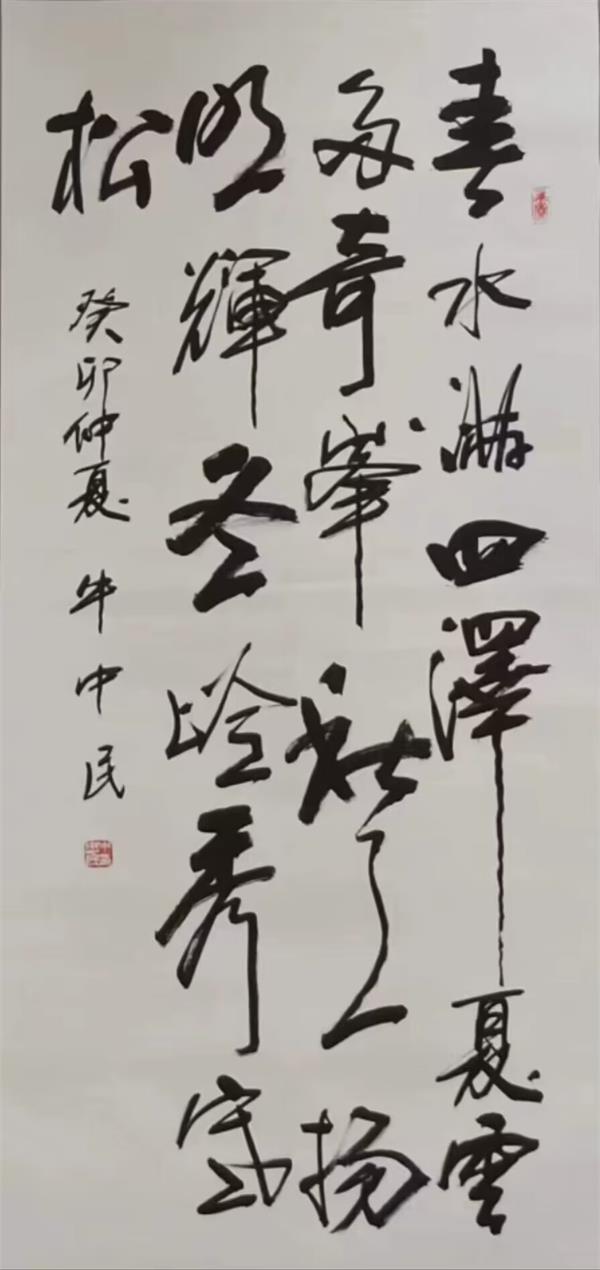 春水满四澤夏雲
多奇峯秋月揚
明輝冬岭秀寒
松
癸卯仲夏 牛中民